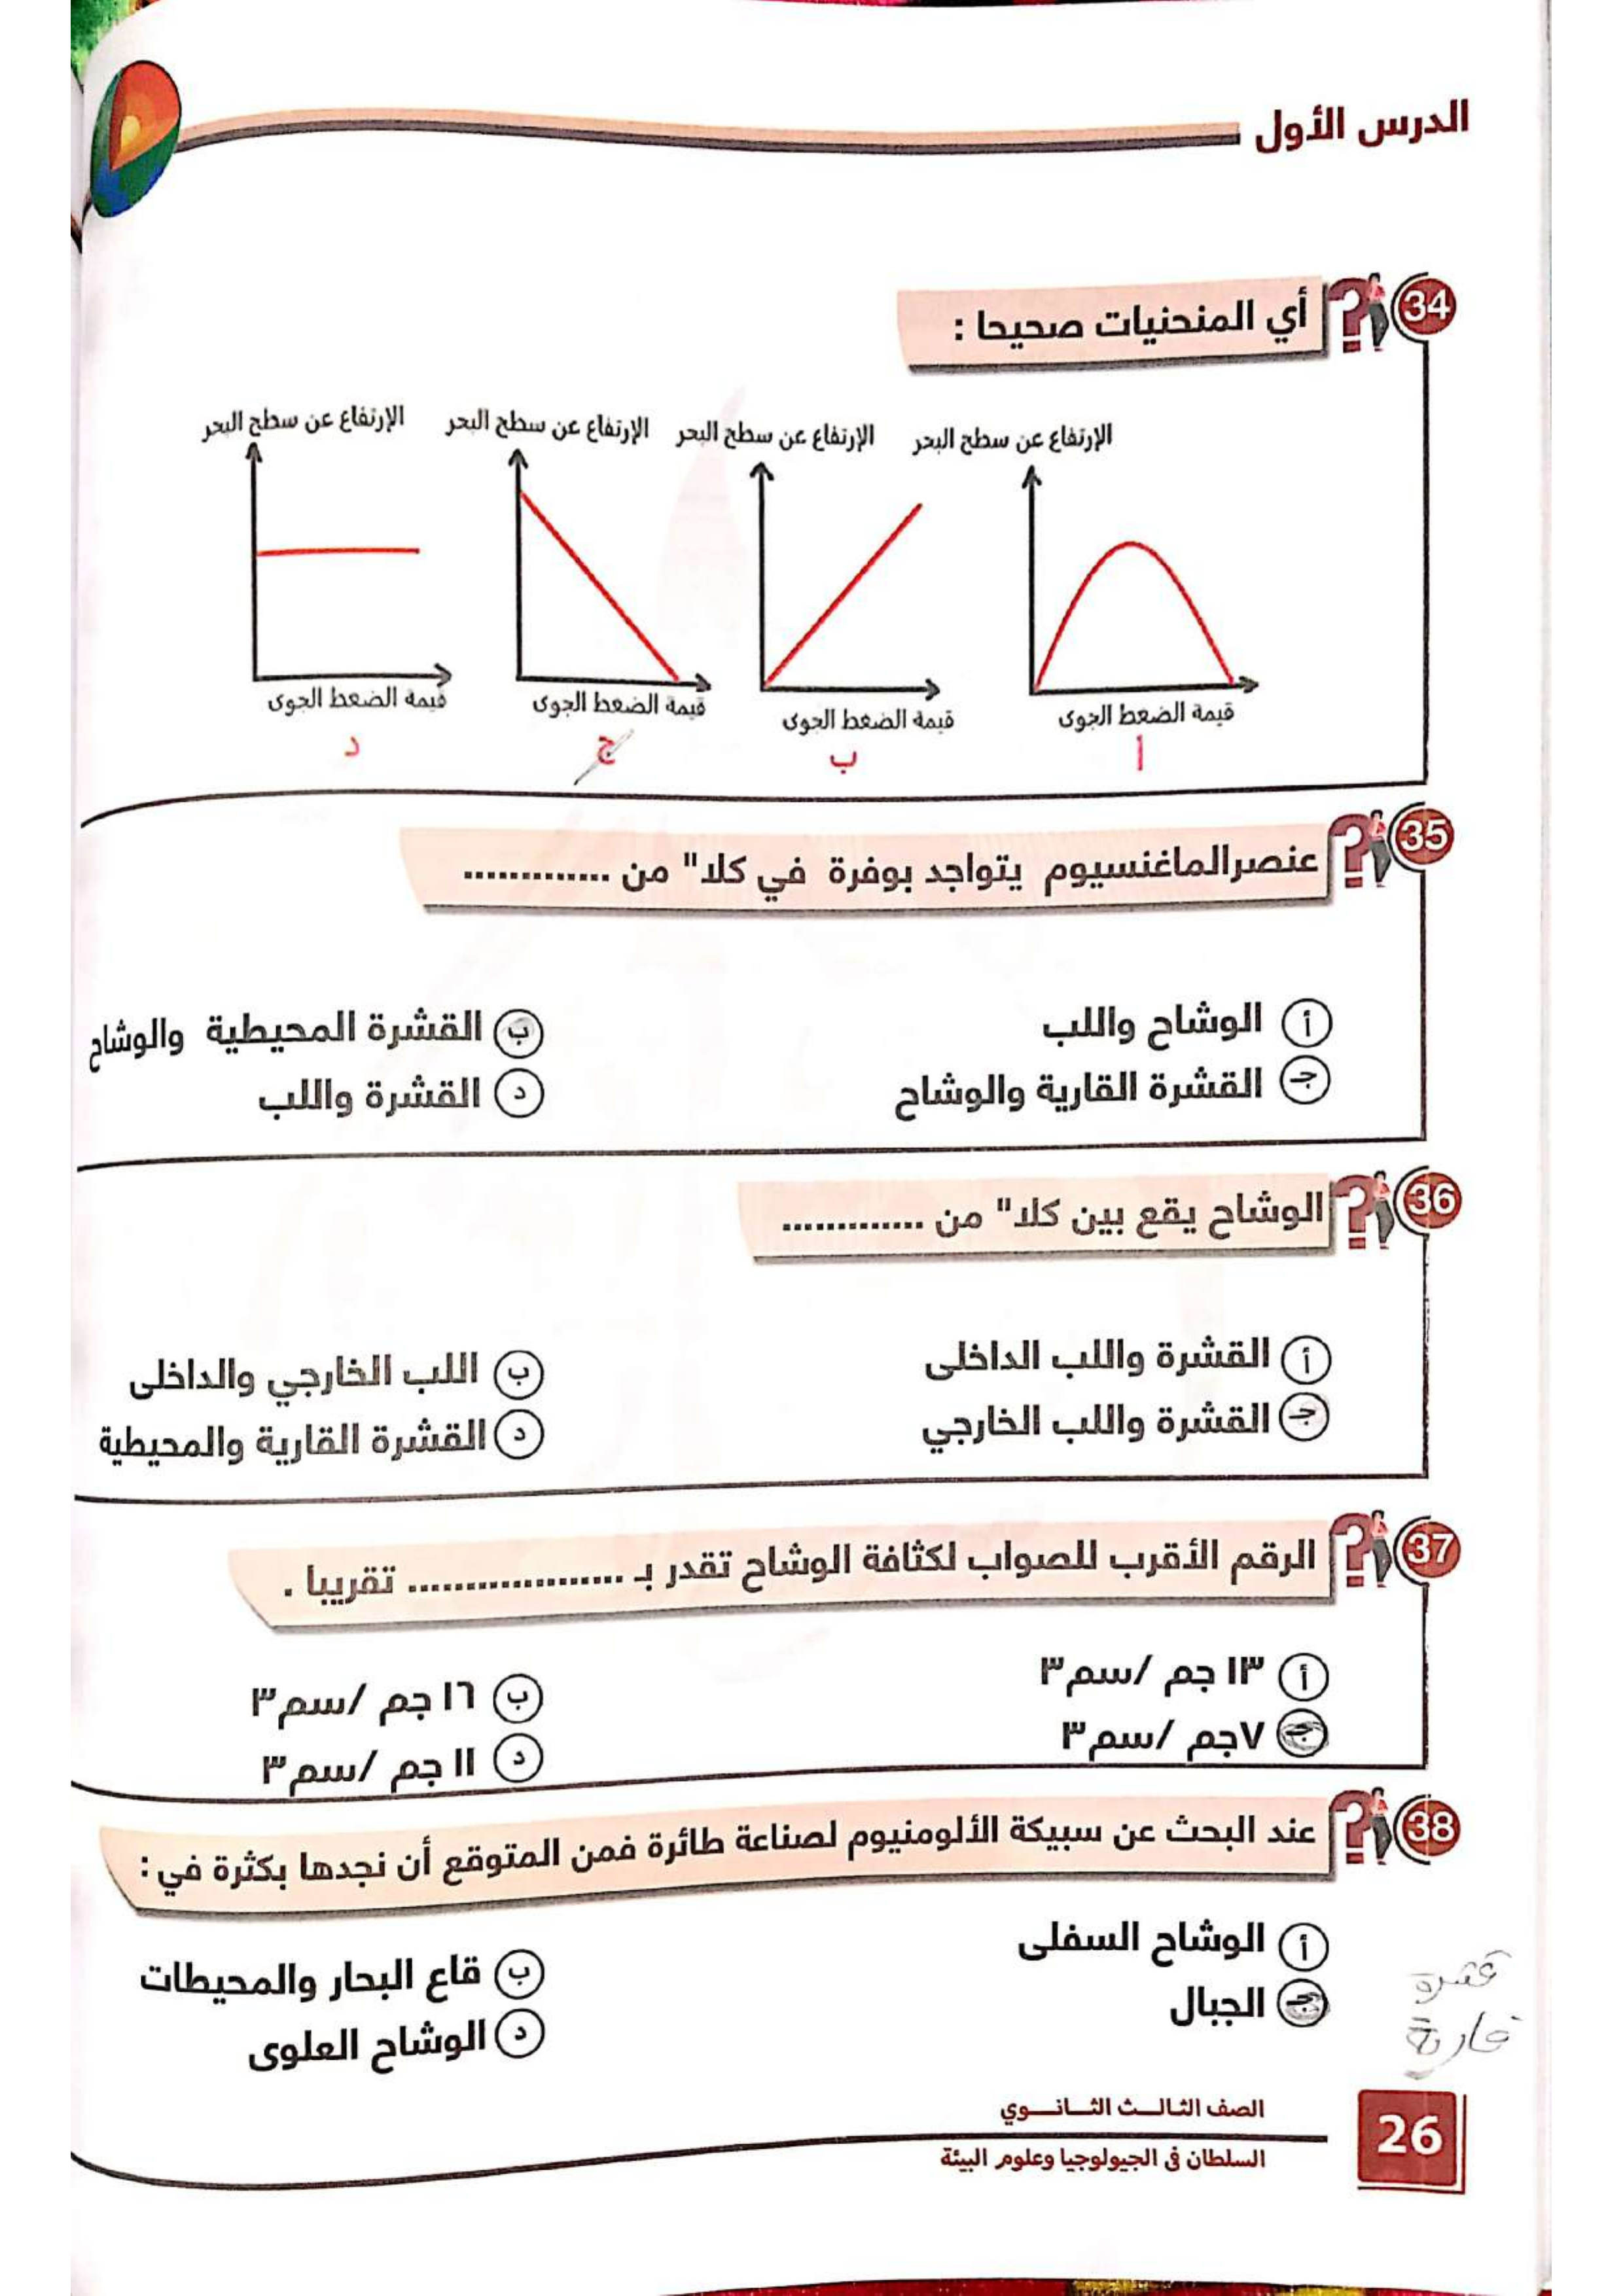 الدرس الأول
34
أي المنحنيات صحيحا :
الإرتفاع عن سطح البحر
الإرتفاع عن سطح البحر
الإرتفاع عن سطح البحر
الإرتفاع عن سطح البحر
قيمة الضغط الجوى
قيمة الضغط الجوى
قيمة الضغط الجوى
قيمة الضغط الجوى
أ
ب
ج
د
35
عنصرالماغنسيوم يتواجد بوفرة في كلا" من .............
أ الوشاح واللب
ب القشرة المحيطية والوشاح
جـ القشرة القارية والوشاح
د القشرة واللب
36
الوشاح يقع بين كلا" من .............
أ القشرة واللب الداخلى
ب اللب الخارجي والداخلى
جـ القشرة واللب الخارجي
د القشرة القارية والمحيطية
37
الرقم الأقرب للصواب لكثافة الوشاح تقدر بـ ................... تقريبا .
أ ١٣ جم /سم٣
ب ١٦ جم /سم٣
جـ ٧جم /سم٣
د ١١ جم /سم٣
38
عند البحث عن سبيكة الألومنيوم لصناعة طائرة فمن المتوقع أن نجدها بكثرة في :
أ الوشاح السفلى
ب قاع البحار والمحيطات
جـ الجبال
د الوشاح العلوى
قشرة
قارية
الصف الثالث الثانوي
السلطان فى الجيولوجيا وعلوم البيئة
26